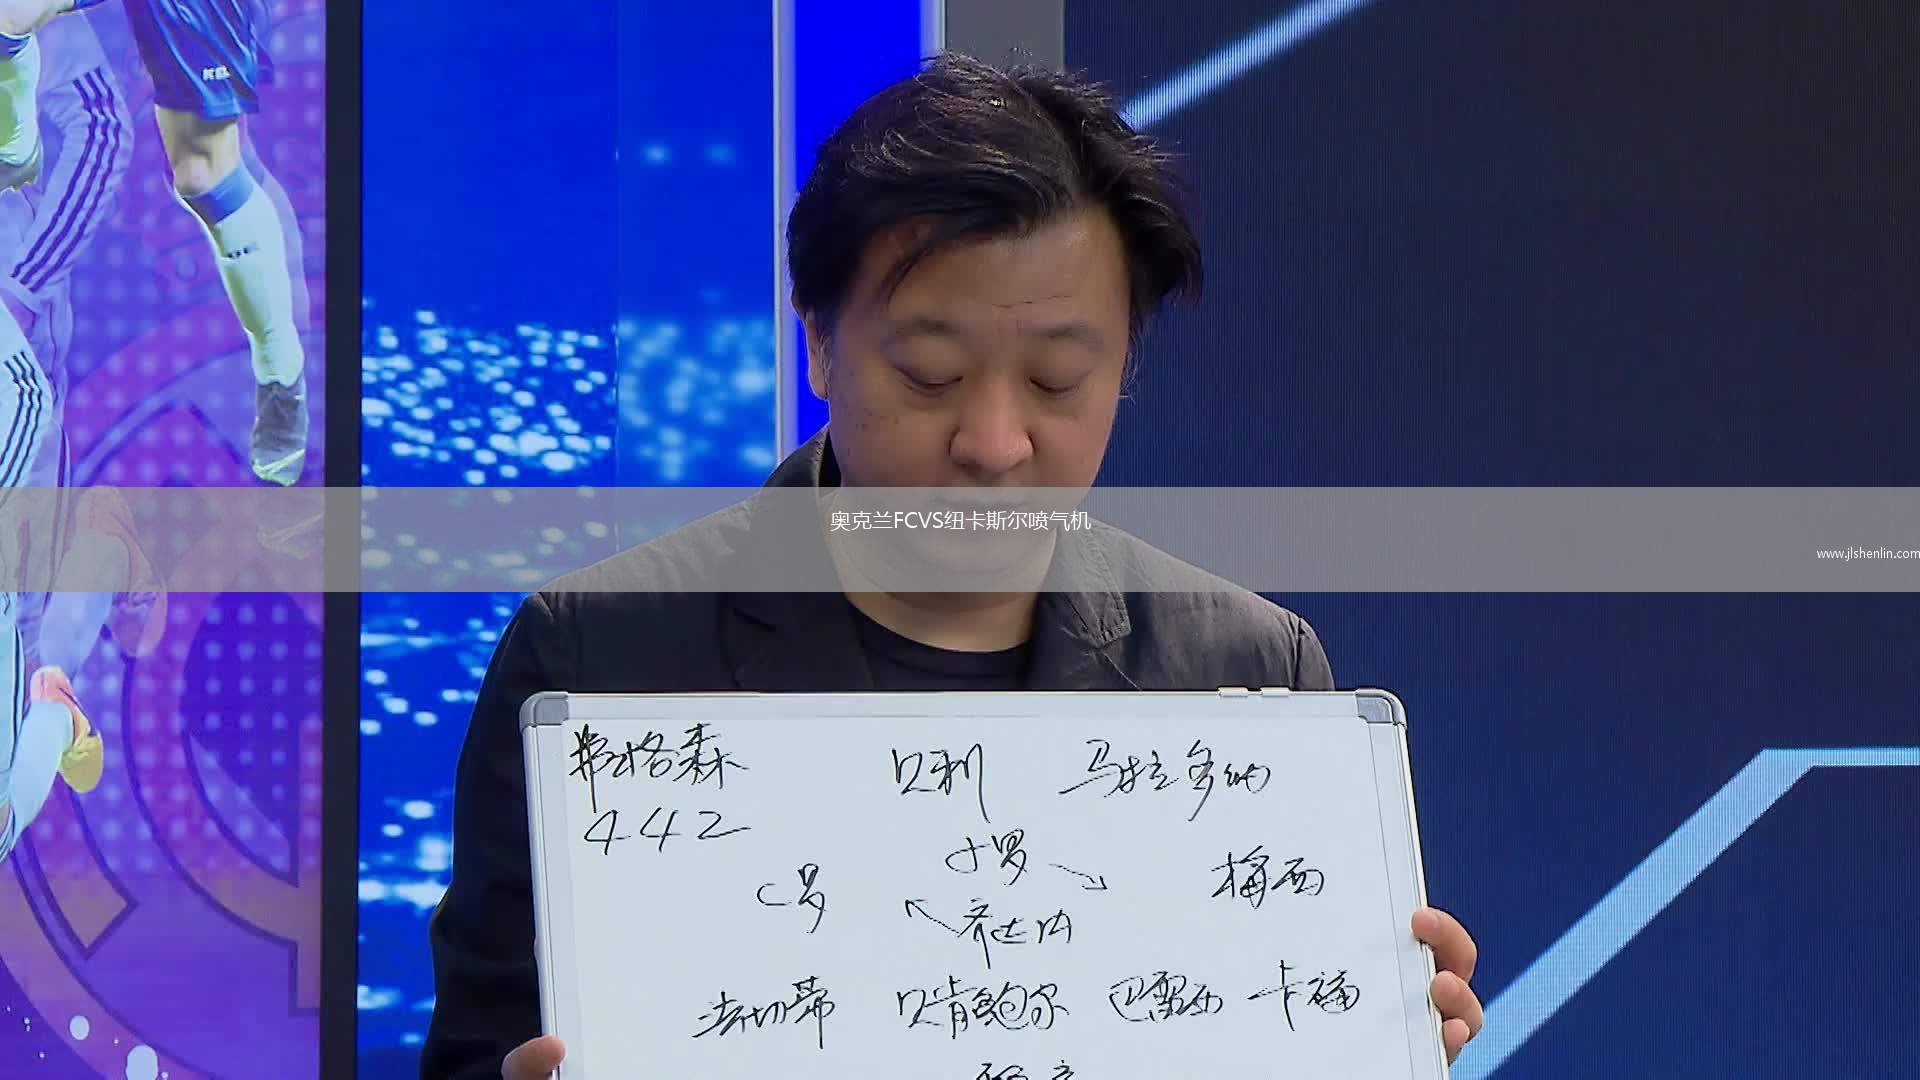 KEL
奥克兰FCVS纽卡斯尔喷气机
www.jlshenlin.com
弗格森 贝利 马拉多纳
442
小罗
C罗 梅西
齐达内
法切蒂 贝肯鲍尔 巴雷西 卡福